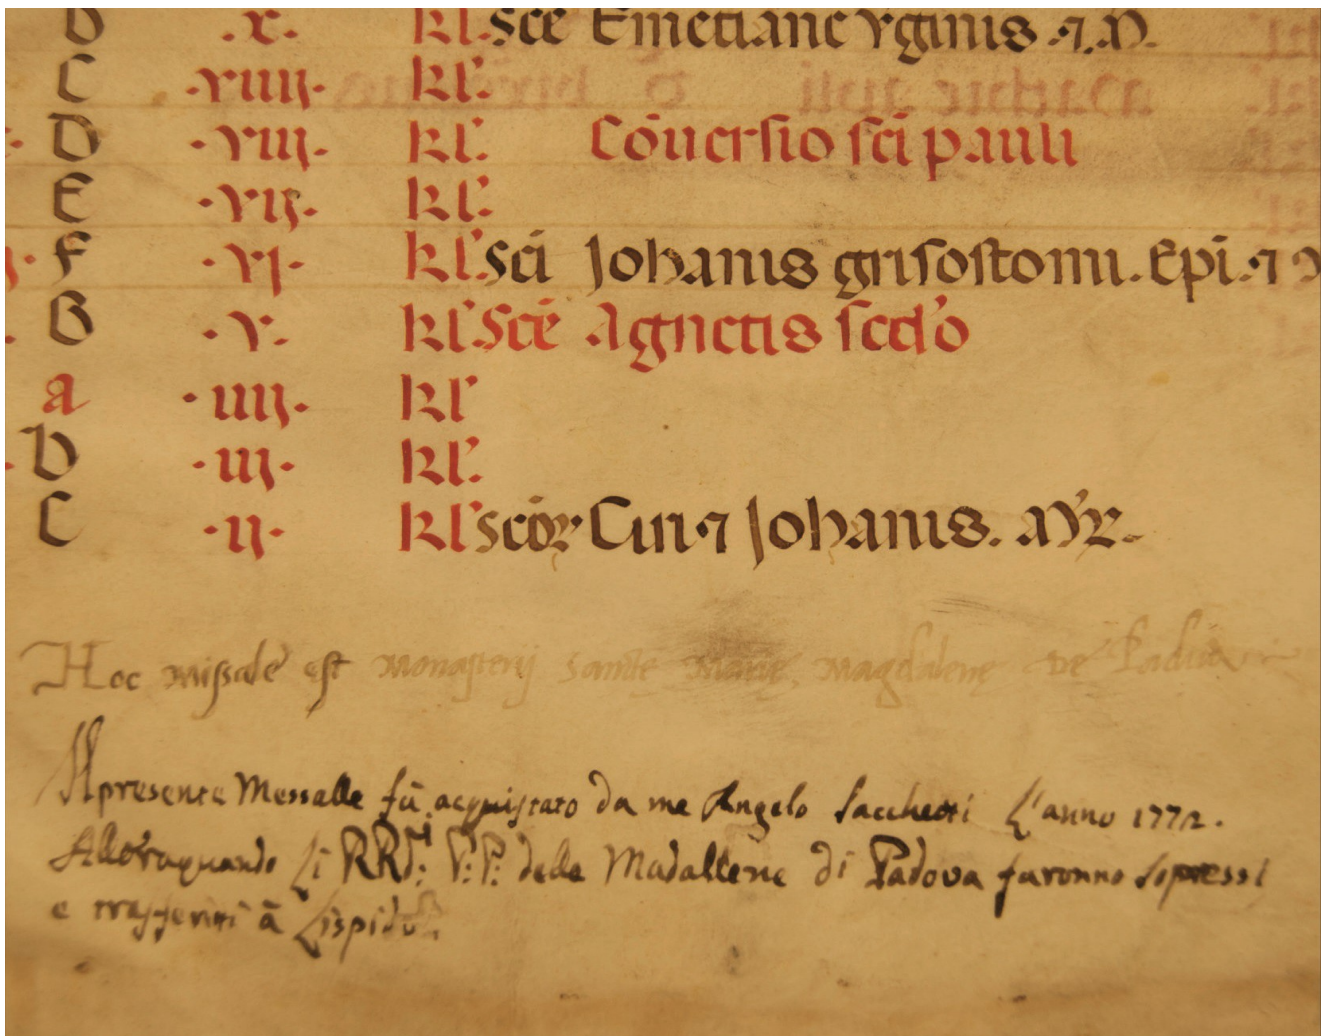 b .x. kl. Sce Emerciane vginis .⁊.M.
C .viiij. kl.
D .viij. kl. Cōuersio sci pauli
E .vij. kl.
F .vj. kl. Sci Johanis grisostomi. Epi. ⁊
G .v. kl Sce Agnetis scd'o
a .iiij. kl
b .iij. kl.
C .ij. kl Scoꝝ Ciri ⁊ Johanis. M'R.
Hoc missale est monasterij sancte Marie magdalene de Padua
Il presente Messalle fù acquistato da me Angelo Sacchetti L'anno 1772.
Allora quando Li RRdi: P:P: delle Madallene di Padova furonno sopressi
e trasferitti à Lispida.